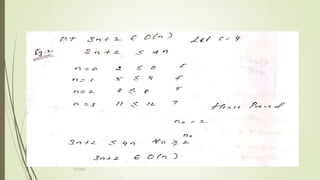 P.T 3n+2 ∈ O(n) Let C = 4
Eg:2 3n+2 ≤ 4n
n=0 2 ≤ 0 F
n=1 5 ≤ 4 F
n=2 8 ≤ 8 T
n=3 11 ≤ 12 T Hence Proved
n₀ = 2.
n₀
3n+2 ≤ 4n ∀n ≥ 2
3n+2 ∈ O(n)